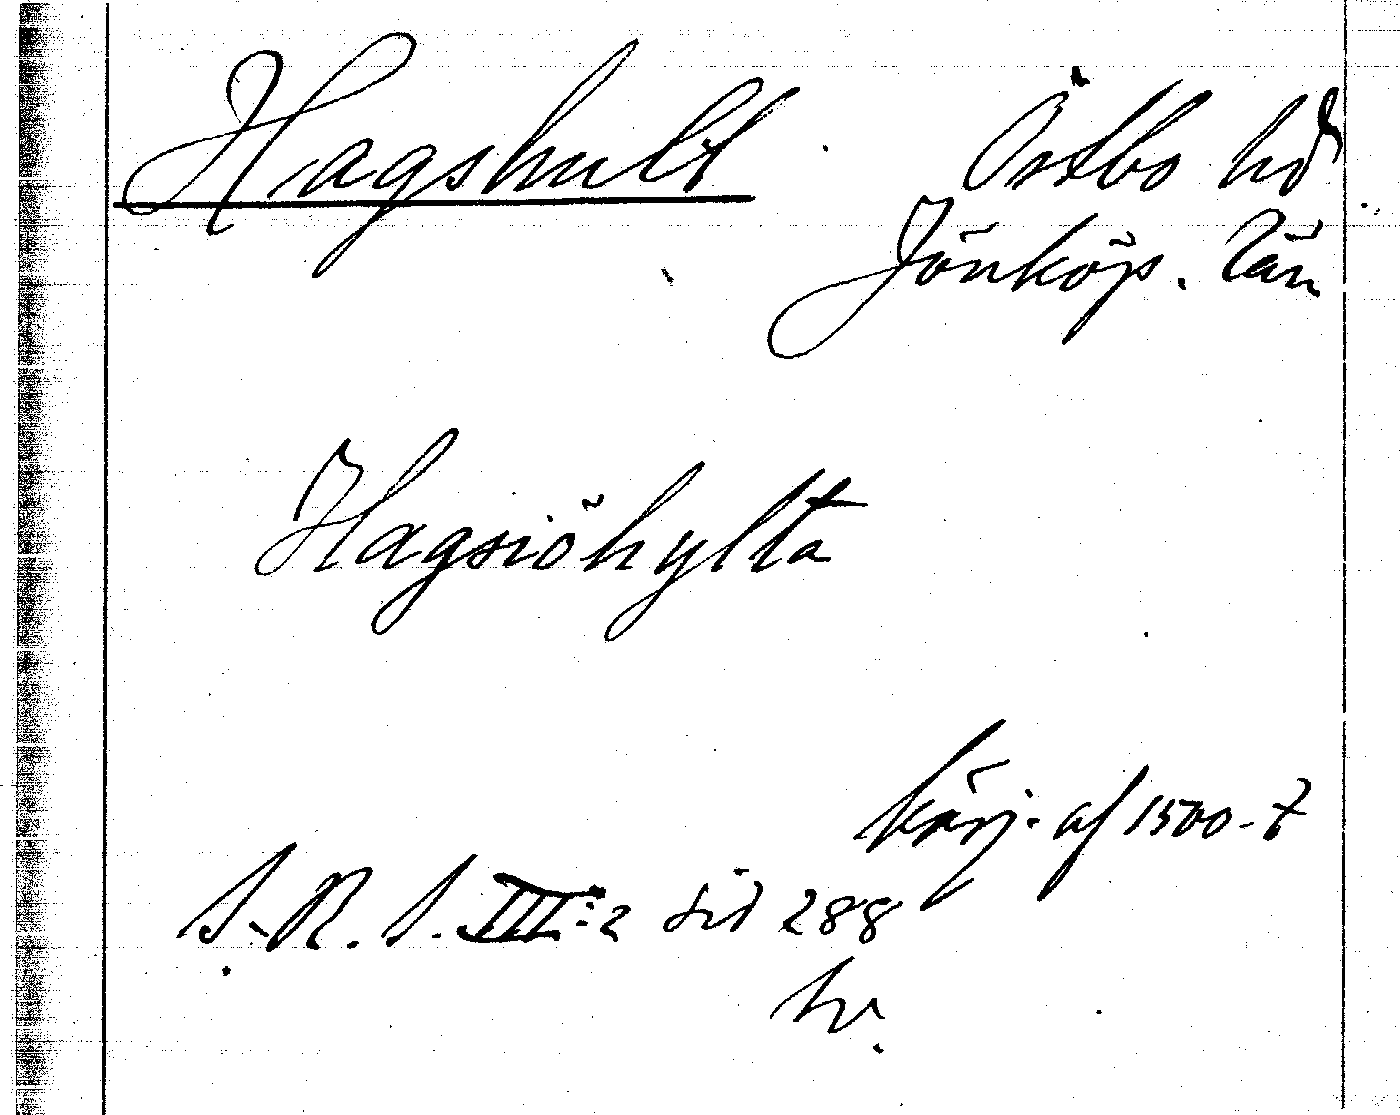 Hagshult Östbo hd
Jönköp. län
Hagsiöhylta
börj. af 1500-t
S. R. S. III:2 sid 288